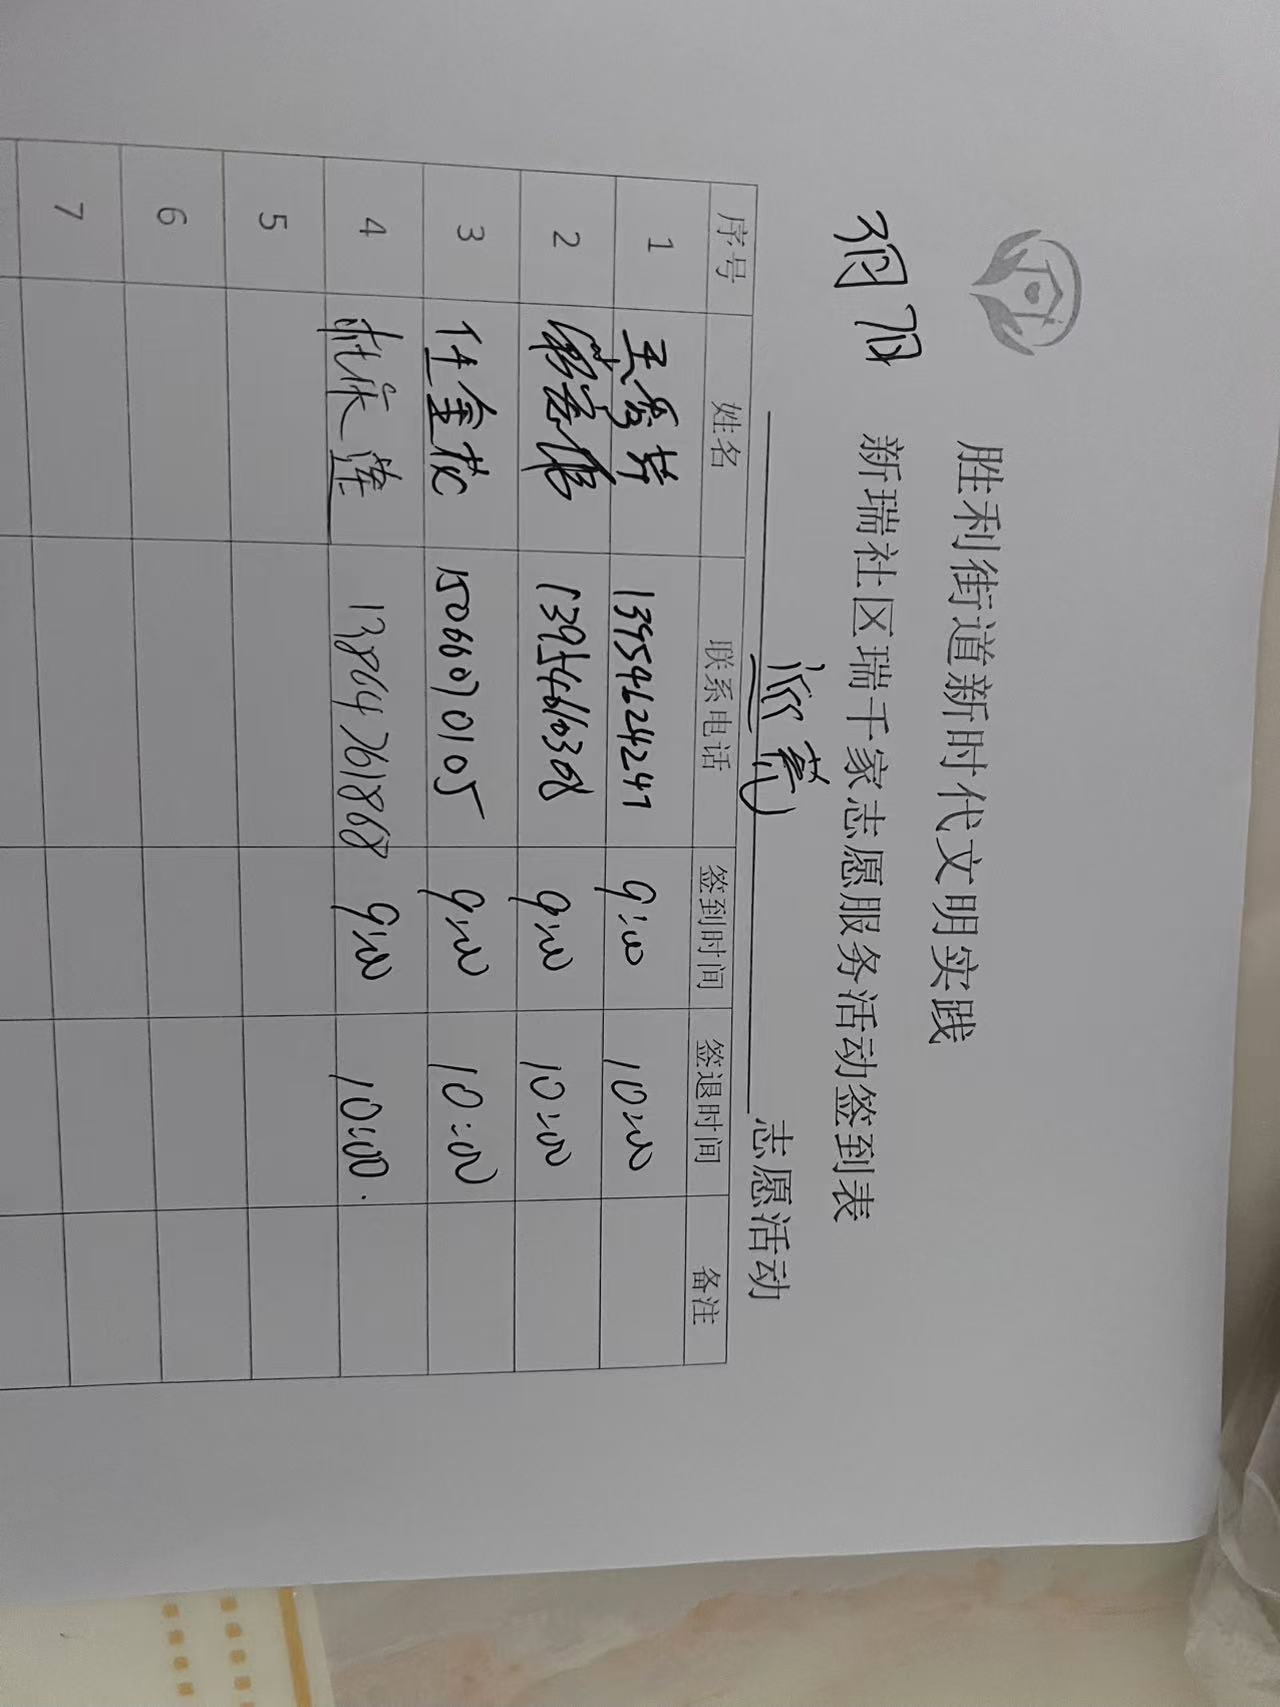 胜利街道新时代文明实践
3月7日 新瑞社区瑞千家志愿服务活动签到表
志愿活动
序号 姓名 联系电话 签到时间 签退时间 备注
1 王秀芹 13954624247 9:00 10:00
2 13954610368 9:00 10:00
3 任金花 15066070105 9:00 10:00
4 13864761868 9:00 10:00.
5
6
7